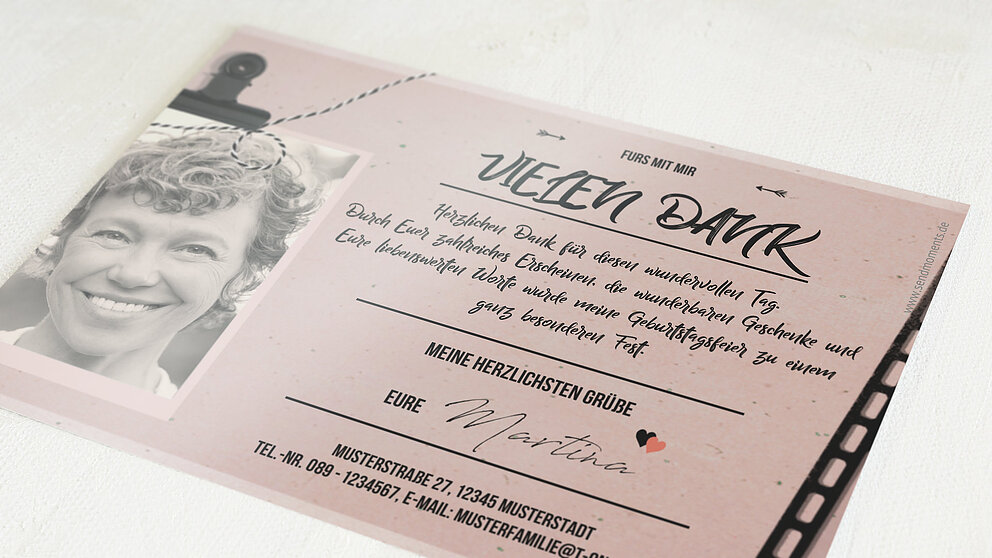 FURS MIT MIR
VIELEN DANK
Herzlichen Dank für diesen wundervollen Tag.
Durch Euer zahlreiches Erscheinen, die wunderbaren Geschenke und
Eure liebenswerten Worte wurde meine Geburtstagsfeier zu einem
ganz besonderen Fest.
MEINE HERZLICHSTEN GRÜßE
EURE Martina
MUSTERSTRAßE 27, 12345 MUSTERSTADT
TEL.-NR. 089 - 1234567, E-MAIL: MUSTERFAMILIE@T-ON
www.sendmoments.de